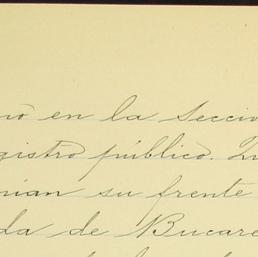 en la Secció
gistro público.
nian su frente
da de Bucare